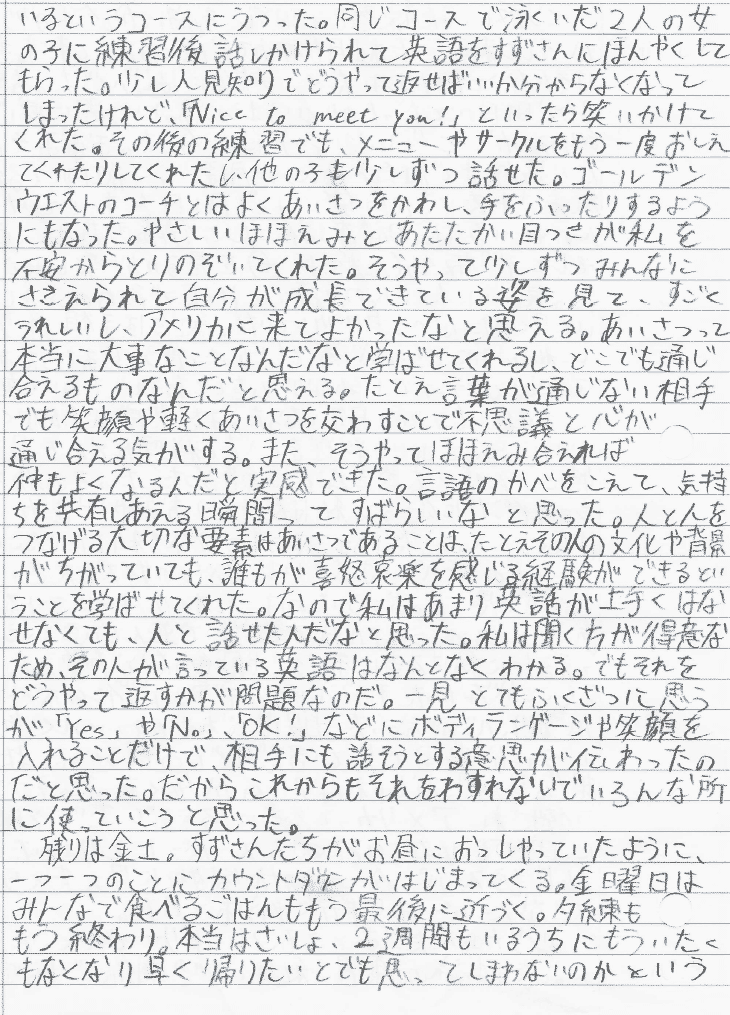 いるというコースにうつった。同じコースで泳いだ2人の女
の子に練習後話しかけられて英語をすずさんにほんやくして
もらった。少し人見知りでどうやって返せばいいか分からなくなって
しまったけれど、「Nice to meet you!」といったら笑いかけて
くれた。その後の練習でも、メニューやサークルをもう一度おしえ
てくれたりしてくれたし、他の子も少しずつ話せた。ゴールデン
ウエストのコーチとはよくあいさつをかわし、手をふったりするよう
にもなった。やさしいほほえみとあたたかい目つきが私を
不安からとりのぞいてくれた。そうやって少しずつみんなに
ささえられて自分が成長できている姿を見て、すごく
うれしいし、アメリカに来てよかったなと思える。あいさつって
本当に大事なことなんだなと学ばせてくれるし、どこでも通じ
合えるものなんだと思える。たとえ言葉が通じない相手
でも笑顔や軽くあいさつを交わすことで不思議と心が
通じ合える気がする。また、そうやってほほえみ合えれば
仲もよくなるんだと実感できた。言語のかべをこえて、気持
ちを共有しあえる瞬間ってすばらしいなと思った。人と人を
つなげる大切な要素はあいさつであることは、たとえその人の文化や背景
がちがっていても、誰もが喜怒哀楽を感じる経験ができるとい
うことを学ばせてくれた。なので私はあまり英語が上手くはな
せなくても、人と話せたんだなと思った。私は聞く方が得意な
ため、その人が言っている英語はなんとなくわかる。でもそれを
どうやって返すかが問題なのだ。一見とてもふくざつに思う
が「Yes」や「No」、「OK!」などにボディランゲージや笑顔を
入れることだけで、相手にも話そうとする意思が伝わったの
だと思った。だからこれからもそれをわすれないでいろんな所
に使っていこうと思った。
残りは金土。すずさんたちがお昼におっしゃっていたように、
一つ一つのことにカウントダウンがはじまってくる。金曜日は
みんなで食べるごはんももう最後に近づく。夕練も
もう終わり。本当はさいしょ、2週間もいるうちにもういたく
もなくなり早く帰りたいとでも思ってしまわないのかという